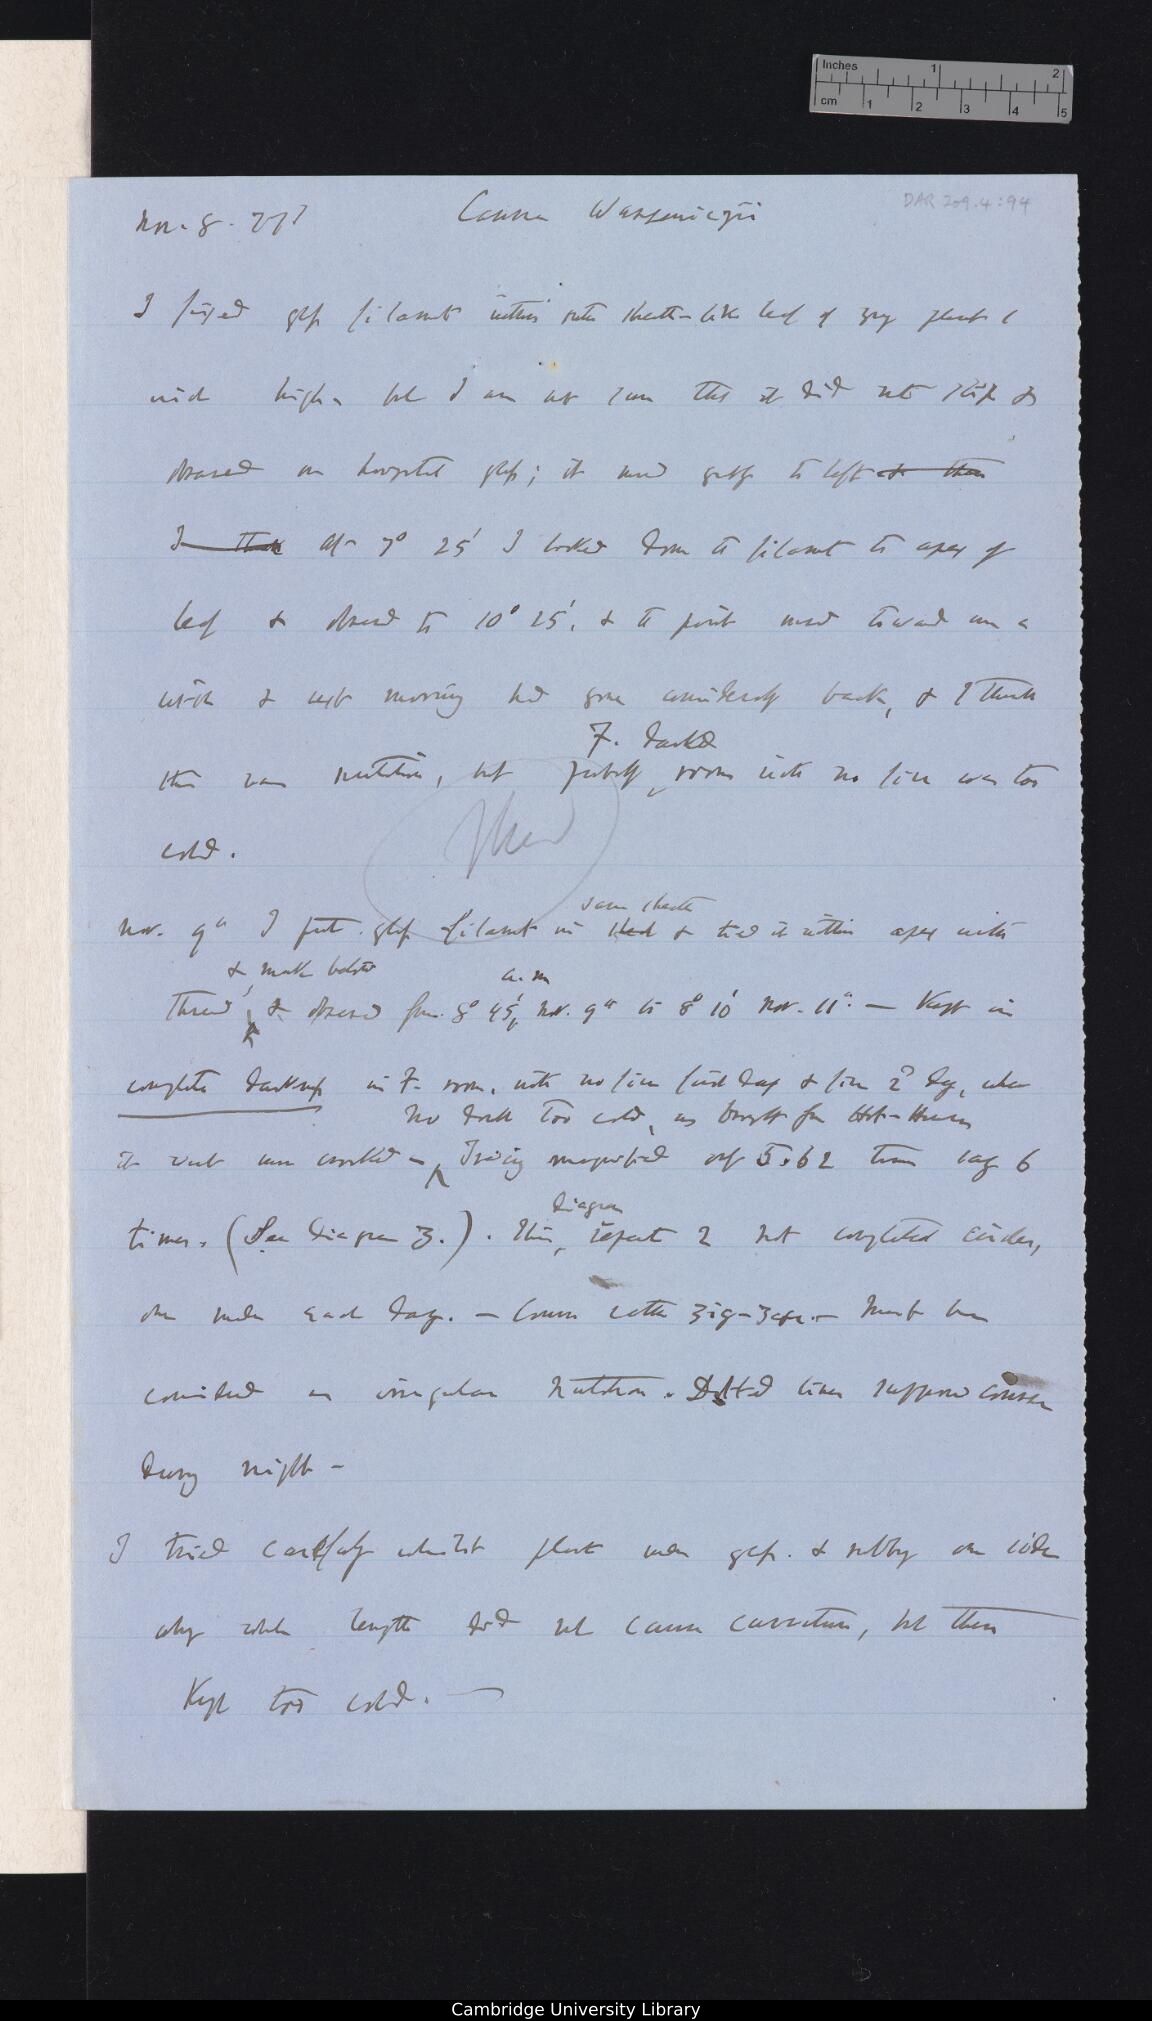 Inches 1 2
cm 1 2 3 4 5
DAR 209.4:94
Nov. 8. 77 Canna Warscewiczii
I fixed glass filament within outer sheath-like leaf of young plant 1
inch high, but I am not sure that it did not slip &
observed on horizontal glass; it moved greatly to left & then
I think At 7° 25' I looked down to filament to apex of
leaf & observed to 10° 25', & the point moved toward me a
& next morning had gone considerably back, & I think
there was nutation, but probably
F. darkened
room with no fire was too
cold.
Used
Nov. 9th I put glass filament in
same sheath
& tied it within apex with
thread
& mark below
& observed from 8° 45'
a.m
Nov. 9th to 8° 10' Nov. 11th. — Kept in
complete darkness in F. room, with no fire first day & fire 2d day, when
no doubt too cold, as brought from Hot-House
it went more crooked — Tracing magnified only 5.62 times say 6
times. (See Diagram 3.). This
diagram
represents 2 not completed circles,
one made each day. — Course rather zig-zag. — Must be
considered as irregular nutation. Dotted lines suppose course
during night —
I tried carefully whilst plant under glass & rubbing one side
along whole length did not cause curvature, but then
Kept too cold. —
Cambridge University Library